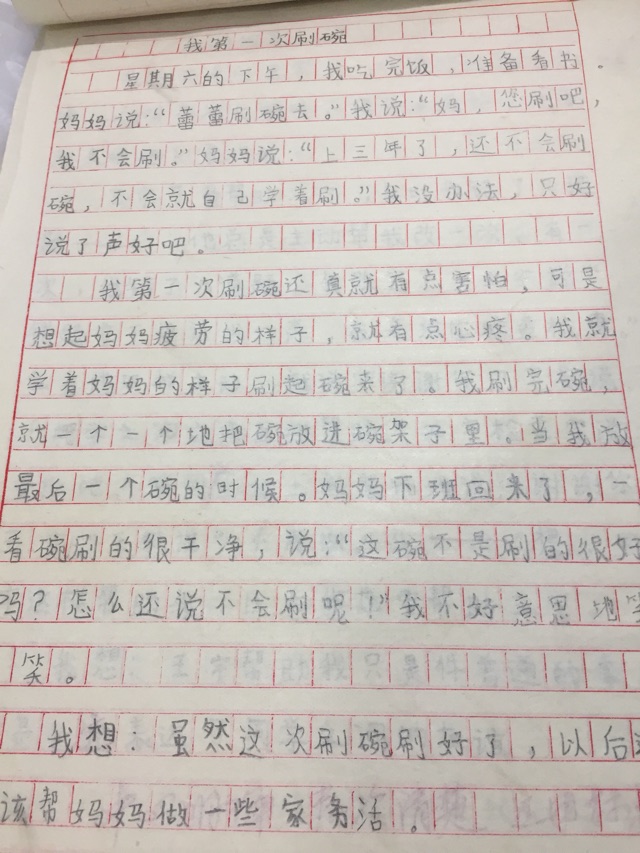 我第一次刷碗
星期六的下午，我吃完饭，准备看书。
妈妈说：“蕾蕾刷碗去。”我说：“妈，您刷吧，
我不会刷。”妈妈说：“上三年了，还不会刷
碗，不会就自己学着刷。”我没办法，只好
说了声好吧。
我第一次刷碗还真就有点害怕，可是
想起妈妈疲劳的样子，就有点心疼。我就
学着妈妈的样子刷起碗来了。我刷完碗，
就一个一个地把碗放进碗架子里。当我放
最后一个碗的时候。妈妈下班回来了，一
看碗刷的很干净，说：“这碗不是刷的很好
吗？怎么还说不会刷呢！”我不好意思地笑
笑。
我想：虽然这次刷碗刷好了，以后
该帮妈妈做一些家务活。